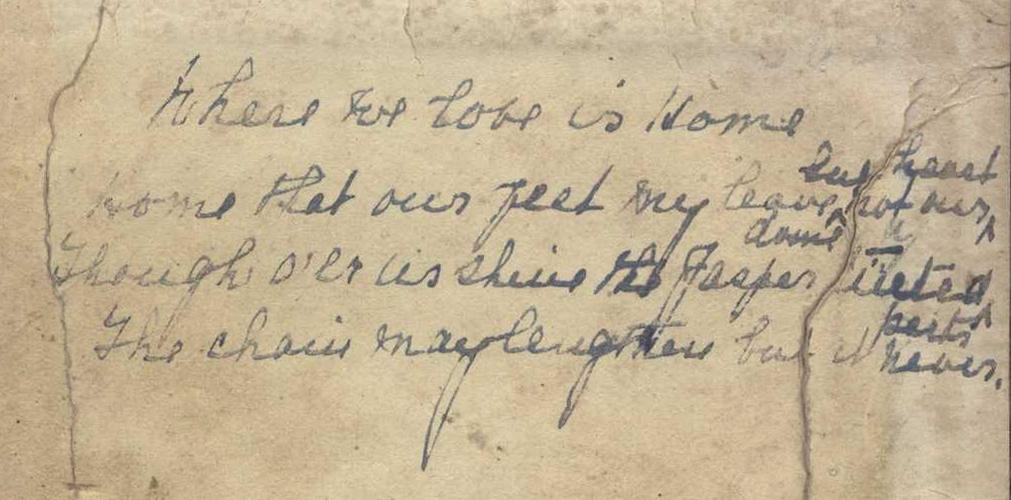 Where we love is Home
but heart
Home that our feet my leave, not our
dome
Though o'er us shine the Jasper tinted
parts
The chain may lengthen but it never.